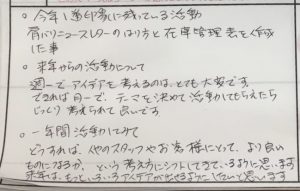 ○ 今年1番印象に残っている活動
肩パンニュースレターのはり方と在庫管理表を作成
した事
○ 来年からの活動について
週一でアイデアを考えるのは、とても大変です。
できれば月一で、テーマを決めて活動してもらえたら
じっくり考えられて良いです
○ 一年間活動してみて
どうすれば、他のスタッフやお客様にとって、より良い
ものになるか、という考え方にシフトしてきているように思います
来年は、もっといろいろアイデアが出せるようにしたいと思います